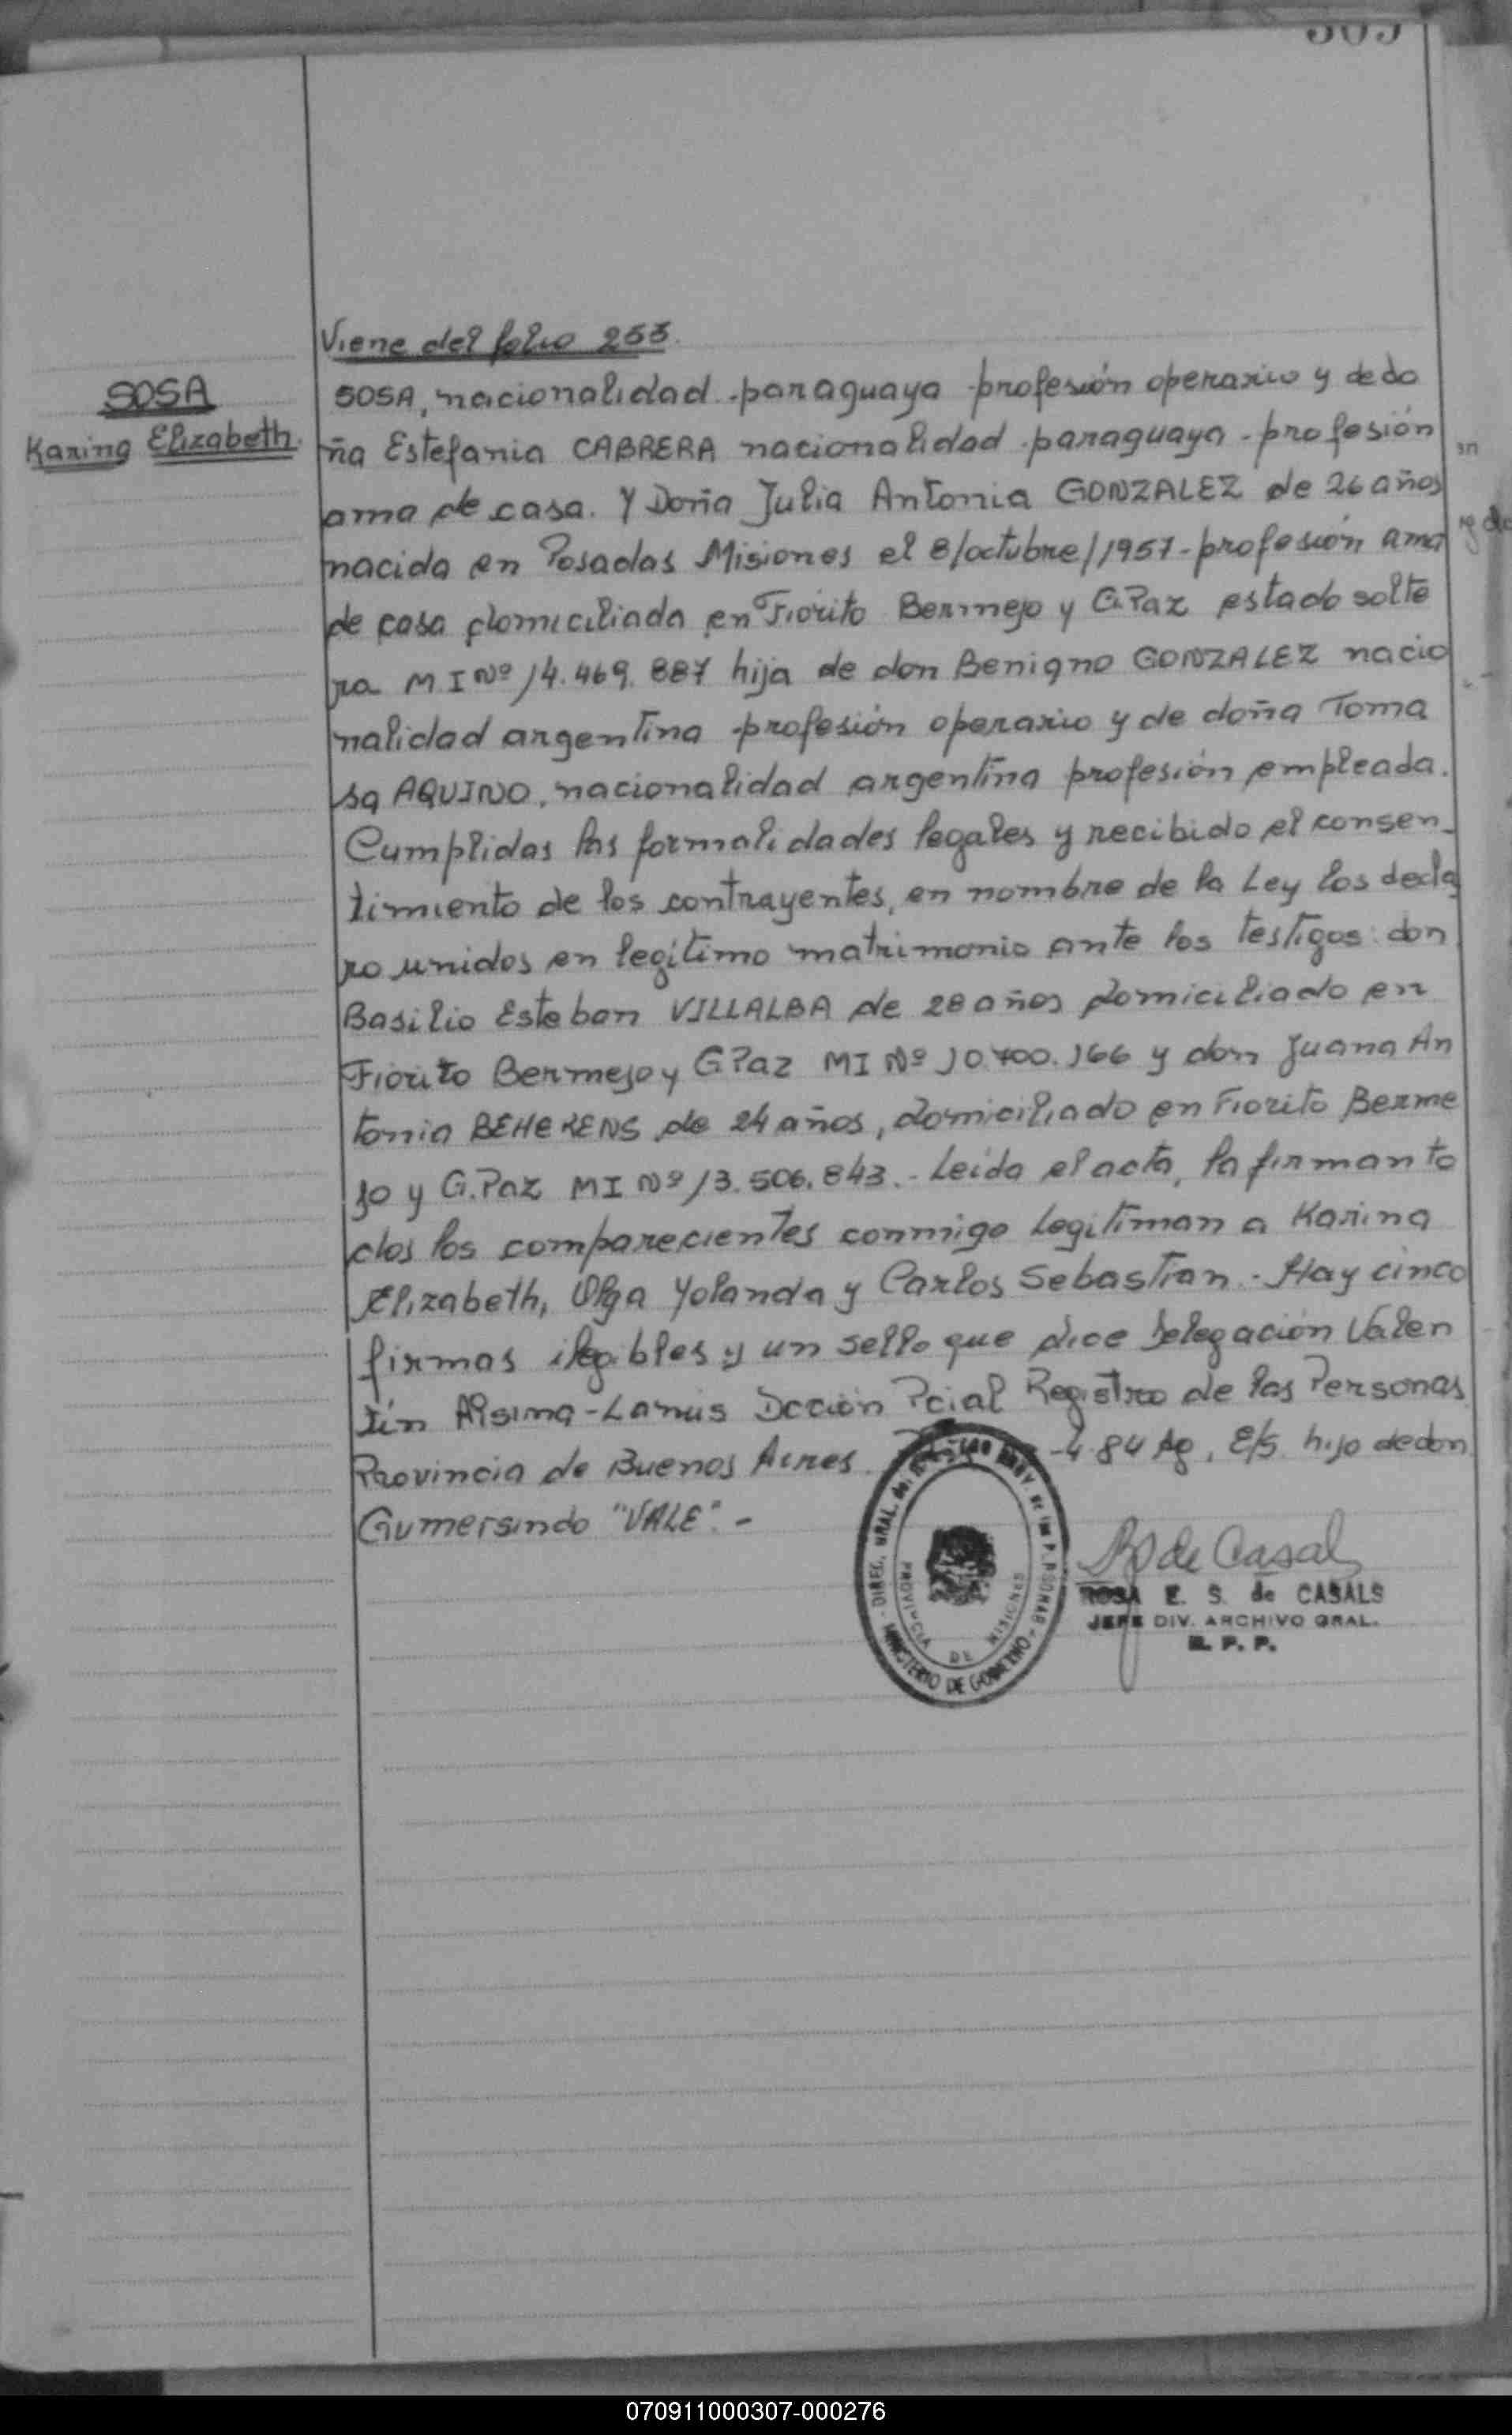 Viene del folio 255.
SOSA
Karina Elizabeth.
SOSA, nacionalidad paraguaya profesión operario y de do
ña Estefania CABRERA nacionalidad paraguaya - profesión
ama de casa. Y Doña Julia Antonia GONZALEZ de 26 años
nacida en Posadas Misiones el 8/octubre/1957 - profesión ama
de casa domiciliada en Fiorito Bermejo y G.Paz estado solte
ra MI Nº 14.469.887 hija de don Benigno GONZALEZ nacio
nalidad argentina profesión operario y de doña Toma
sa AQUINO, nacionalidad argentina profesión empleada.
Cumplidas las formalidades legales y recibido el consen-
timiento de los contrayentes, en nombre de la Ley los decla
ro unidos en legítimo matrimonio ante los testigos: don
Basilio Esteban VILLALBA de 28 años domiciliado en
Fiorito Bermejo y G Paz MI Nº 10.700.166 y don Juana An
tonia BEHERENS de 24 años, domiciliado en Fiorito Berme
jo y G.Paz MI Nº 13.506.843.- Leída el acta, la firman to
dos los comparecientes conmigo Legitiman a Karina
Elizabeth, Olga Yolanda y Carlos Sebastian - Hay cinco
firmas ilegibles y un sello que dice Delegación Valen
tín Alsina - Lanús Dcción Pcial Registro de las Personas
Provincia de Buenos Aires. -4-84 Ag, E/S. hijo de don
Gumersindo "VALE".-
MINISTERIO DE GOBIERNO
PROVINCIA DE MISIONES
de Casals
ROSA E. S. de CASALS
JEFE DIV. ARCHIVO GRAL.
R. P. P.
070911000307-000276